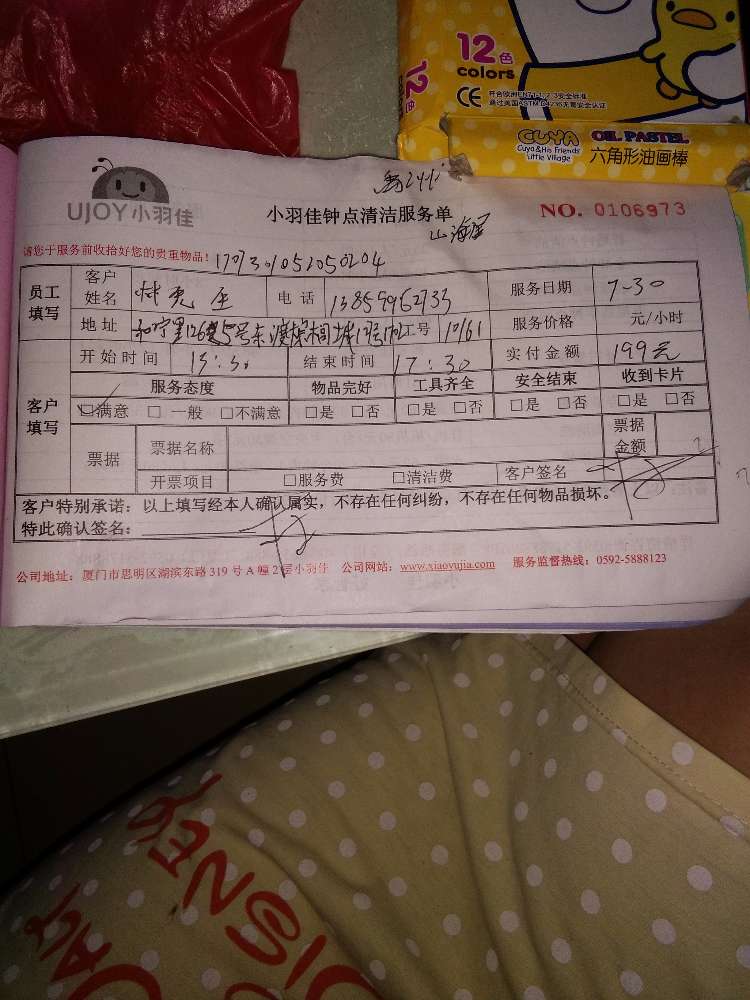 12色
colors
12色
CE 符合欧洲EN71-1,2,3安全标准
通过美国ASTM D4236无毒安全认证
CUYA OIL PASTEL
Cuya & His Friends
Little Village 六角形油画棒
UJOY小羽佳
小羽佳钟点清洁服务单
NO. 0106973
请您于服务前收拾好您的贵重物品! 1707301052050204
员工填写 客户姓名 电话 13859952733 服务日期 7-30
地址 工号 10161 服务价格 元/小时
客户填写 开始时间 13:30 结束时间 17:30 实付金额 199元
服务态度 物品完好 工具齐全 安全结束 收到卡片
☑满意 □一般 □不满意 □是 □否 □是 □否 □是 □否 □是 □否
票据 票据名称 票据金额
开票项目 □服务费 □清洁费 客户签名
客户特别承诺:以上填写经本人确认属实,不存在任何纠纷,不存在任何物品损坏。
特此确认签名:
公司地址:厦门市思明区湖滨东路319号A幢2层小羽佳 公司网站:www.xiaoyujia.com 服务监督热线:0592-5888123
DISNEY